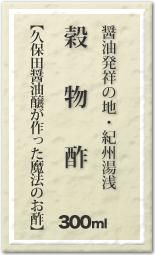 醤油発祥の地・紀州湯浅
穀物酢
【久保田醤油醸が作った魔法のお酢】
300ml